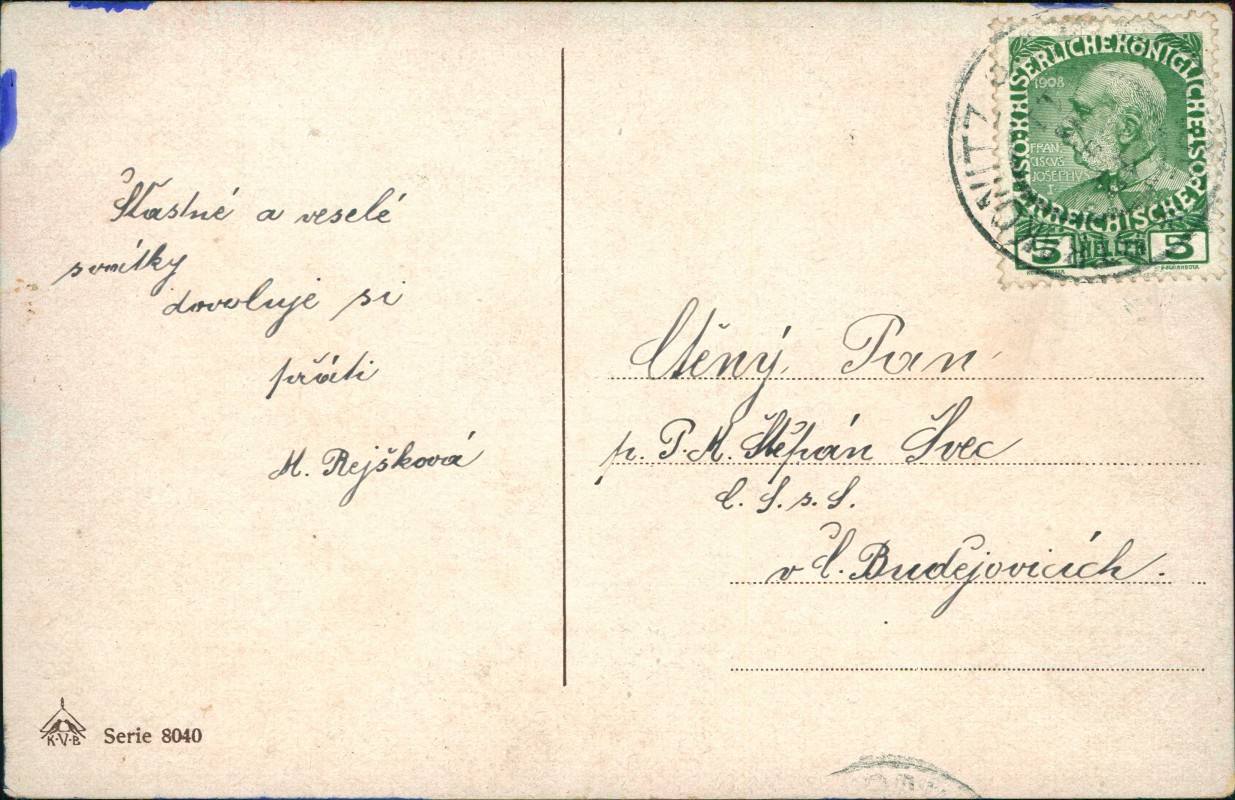 Šťastné a veselé
svátky
dovoluje si
přáti
M. Rejšková
K.V.B
Serie 8040
KAISERLICHE KÖNIGLICHE ÖSTERREICHISCHE POST
1908
FRAN
CISCVS
JOSEPHVS
I
5 HELLER 5
Ctěný Pan
p. T. M. Štěpán Švec
v Č. Budějovicích.